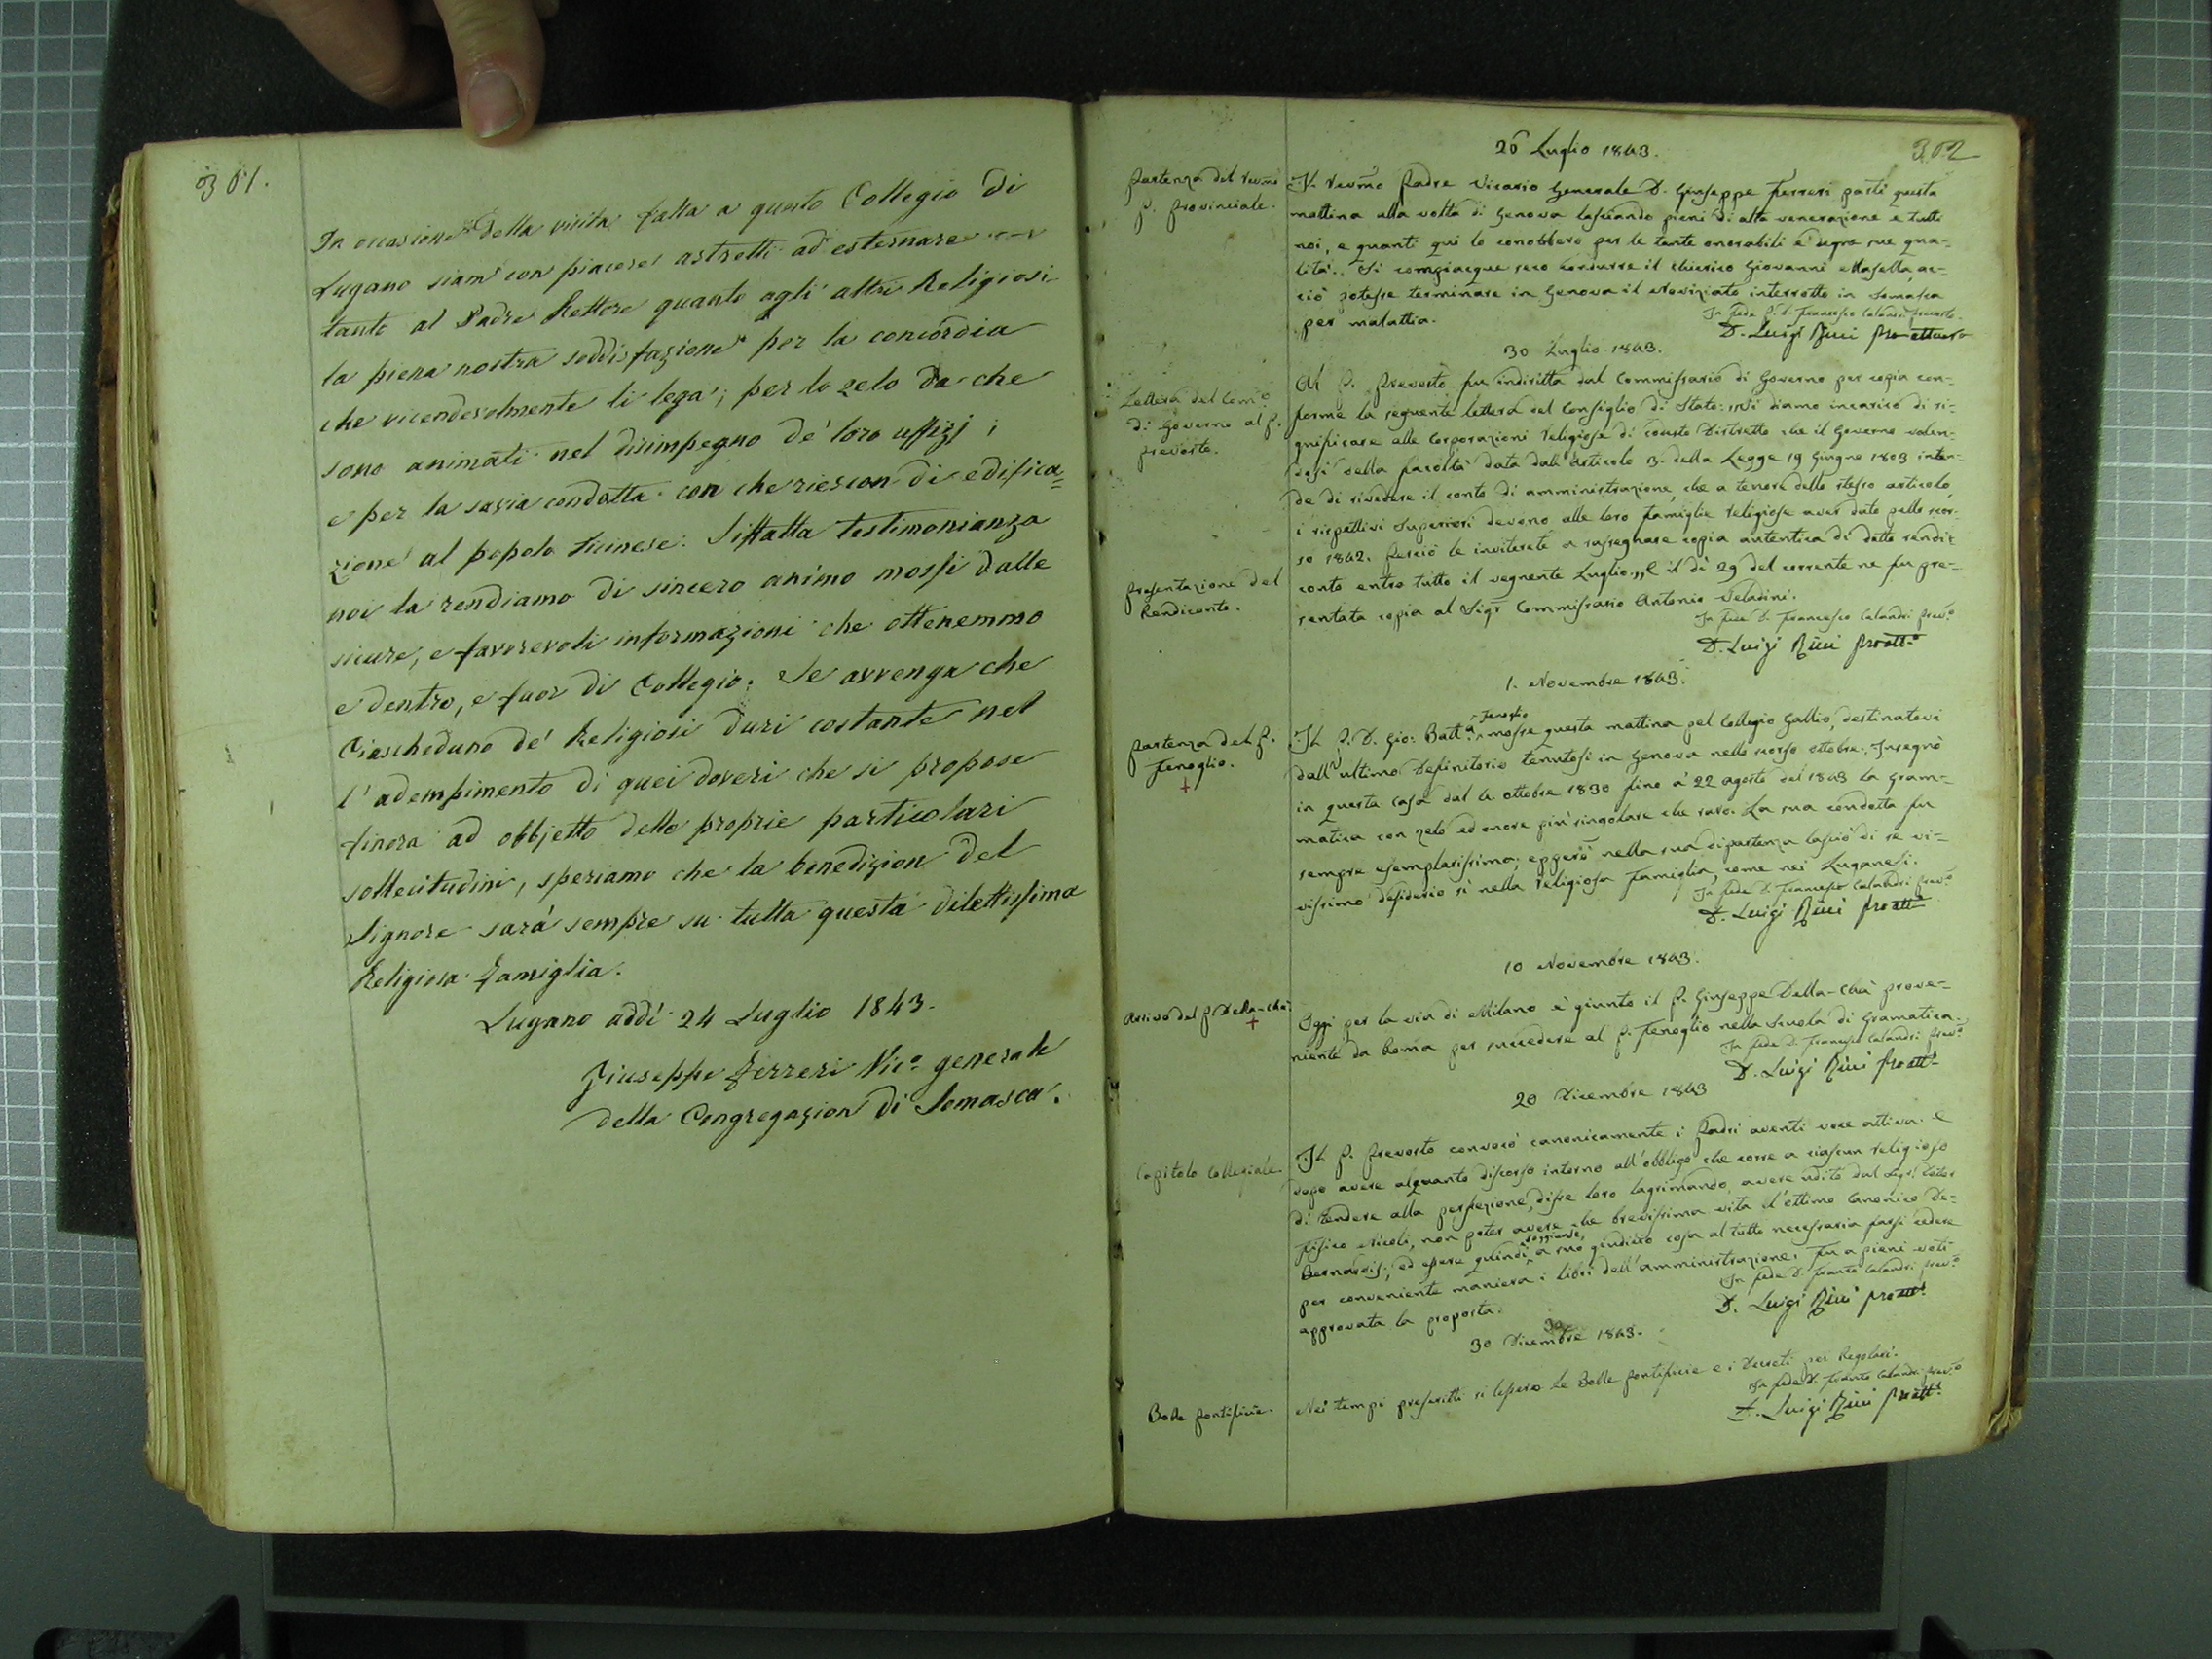 301.
In occasione della visita fatta a questo Collegio di
Lugano siam con piacere astretti ad esternare
tanto al Padre Rettore quanto agli altri Religiosi
la piena nostra soddisfazione per la concordia
che vicendevolmente li lega; per lo zelo da che
sono animati nel disimpegno de' loro uffizj;
e per la savia condotta con che riescon di edifica=
zione al popolo ticinese. Siffatta testimonianza
noi la rendiamo di sincero animo mossi dalle
sicure, e favorevoli informazioni che ottenemmo
e dentro, e fuor di Collegio. Se avvenga che
Ciascheduno de' Religiosi duri costante nel
l'adempimento di quei doveri che si propose
finora ad obbjetto delle proprie particolari
sollecitudini, speriamo che la benedizion del
Signore sarà sempre su tutta questa dilettissima
Religiosa Famiglia.
Lugano addì 24 Luglio 1843.
Giuseppe Ferreri Vic.o generale
della Congregazion di Somasca.
302
26 Luglio 1843.
Partenza del revmo
P. Provinciale.
Il revmo Padre Vicario Generale D. Giuseppe Ferreri partì questa
mattina alla volta di Genova lasciando pieni di alta venerazione e tutti
noi, e quanti qui lo conobbero per le tante onorabili e degne sue qua-
lità. Si compiacque seco condurre il chierico Giovanni Masella, ac-
ciò potesse terminare in Genova il Noviziato interrotto in Somasca
per malattia.
In fede P. D. Francesco Calandri prevosto.
D. Luigi Rici Pro attuaro
30 Luglio 1843.
Lettera del Comio
di Governo al P.
prevosto.
Al P. Prevosto fu indiritta dal Commissario di Governo per copia con-
forme la seguente lettera del Consiglio di Stato: "Vi diamo incarico di si-
gnificare alle Corporazioni religiose di codesto Distretto che il Governo valen-
dosi della facoltà data dall'Articolo 3. della Legge 19 Giugno 1803 inten-
de di rivedere il conto di amministrazione, che a tenore dello stesso articolo
i rispettivi Superiori devono alle loro Famiglie religiose aver dato pello scor-
so 1842. Perciò le inviterete a rassegnare copia autentica di detto rendi-
conto entro tutto il vegnente Luglio." E il dì 29 del corrente ne fu pre-
sentata copia al Sigr Commissario Antonio Veladini.
Presentazione del
Rendiconto.
In fede D. Francesco Calandri prev.o
D. Luigi Rici proatt.o
1. Novembre 1843.
Partenza del P.
Fenoglio.
+
Il P. D. Gio: Batta Fenoglio mosse questa mattina pel Collegio Gallio, destinatovi
dall'ultimo Definitorio tenutosi in Genova nello scorso ottobre. Insegnò
in questa Casa dal 4 ottobre 1830 fino a' 22 agosto del 1843 la Gram-
matica con zelo ed onore più singolare che raro. La sua condotta fu
sempre esemplarissima; epperò nella sua dipartenza lasciò di se vi-
vissimo desiderio sì nella religiosa Famiglia, come nei Luganesi.
In fede D. Francesco Calandri prev.o
D. Luigi Rici proatt.o
10 Novembre 1843.
Arrivo del P. Della-Chà
+
Oggi per la via di Milano è giunto il P. Giuseppe Della-Chà prove-
niente da Roma per succedere al P. Fenoglio nella scuola di Gramatica.
In fede D. Francesco Calandri prev.o
D. Luigi Rici proatt.o
20 Dicembre 1843
Capitolo Collegiale.
Il P. Prevosto convocò canonicamente i Padri aventi voce attiva. E
dopo avere alquanto discorso intorno all'obbligo che corre a ciascun religioso
di tendere alla perfezione, disse loro lagrimando, avere udito dal Sigr Dotor
Fisico Nicoli, non poter avere che brevissima vita l'ottimo Canonico De-
Bernardis; ed essere quindi, soggiunse, a suo giudizio cosa al tutto necessaria farsi cedere
per conveniente maniera i libri dell'amministrazione. Fu a pieni voti
approvata la proposta.
In fede D. Franco Calandri prev.o
D. Luigi Rici proatt.o
30 Dicembre 1843.
Bolle Pontificie.
Nei tempi prescritti si lessero le Bolle Pontificie e i Decreti per Regolari.
In fede D. Franco Calandri prev.o
D. Luigi Rici proatt.o